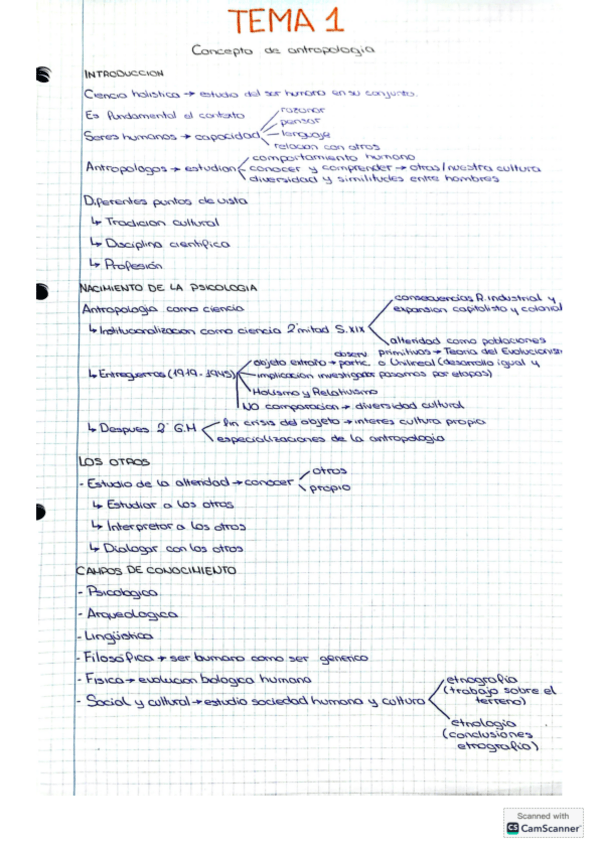 TEMA 1
Concepto de antropología
INTRODUCCION
Ciencia holística → estudio del ser humano en su conjunto.
Es fundamental el contexto
razonar
pensar
Seres humanos → capacidad lenguaje
relacion con otros
comportamiento humano
Antropologos → estudian conocer y comprender → otras/nuestra cultura
diversidad y similitudes entre hombres
Diferentes puntos de vista
↳ Tradicion cultural
↳ Disciplina científica
↳ Profesión
NACIMIENTO DE LA PSICOLOGIA
consecuencias R.industrial y
Antropologia como ciencia expansion capitalista y colonial
↳ Institucionalizacion como ciencia 2ªmitad S.XIX
alteridad como poblaciones
observ primitivos → Teoria del Evolucionis
objeto extraño → partic. o Unilineal (desarrollo igual y
↳ Entreguerras (1919-1945) implicacion investigador pasamos por etapas)
Holismo y Relativismo
NO comparacion → diversidad cultural
↳ Despues 2ª G.M fin crisis del objeto → interes cultura propia
especializaciones de la antropologia
LOS OTROS
otros
- Estudio de la alteridad → conocer
propio
↳ Estudiar a los otros
↳ Interpretar a los otros
↳ Dialogar con los otros
CAMPOS DE CONOCIMIENTO
- Psicologica
- Arqueologica
- Lingüística
- Filosófica → ser humano como ser generico
- Fisica → evolucion biologica humana
etnografia
(trabajo sobre el
- Social y cultural → estudio sociedad humana y cultura terreno)
etnologia
(conclusiones
etnografia)
Scanned with
CS CamScanner